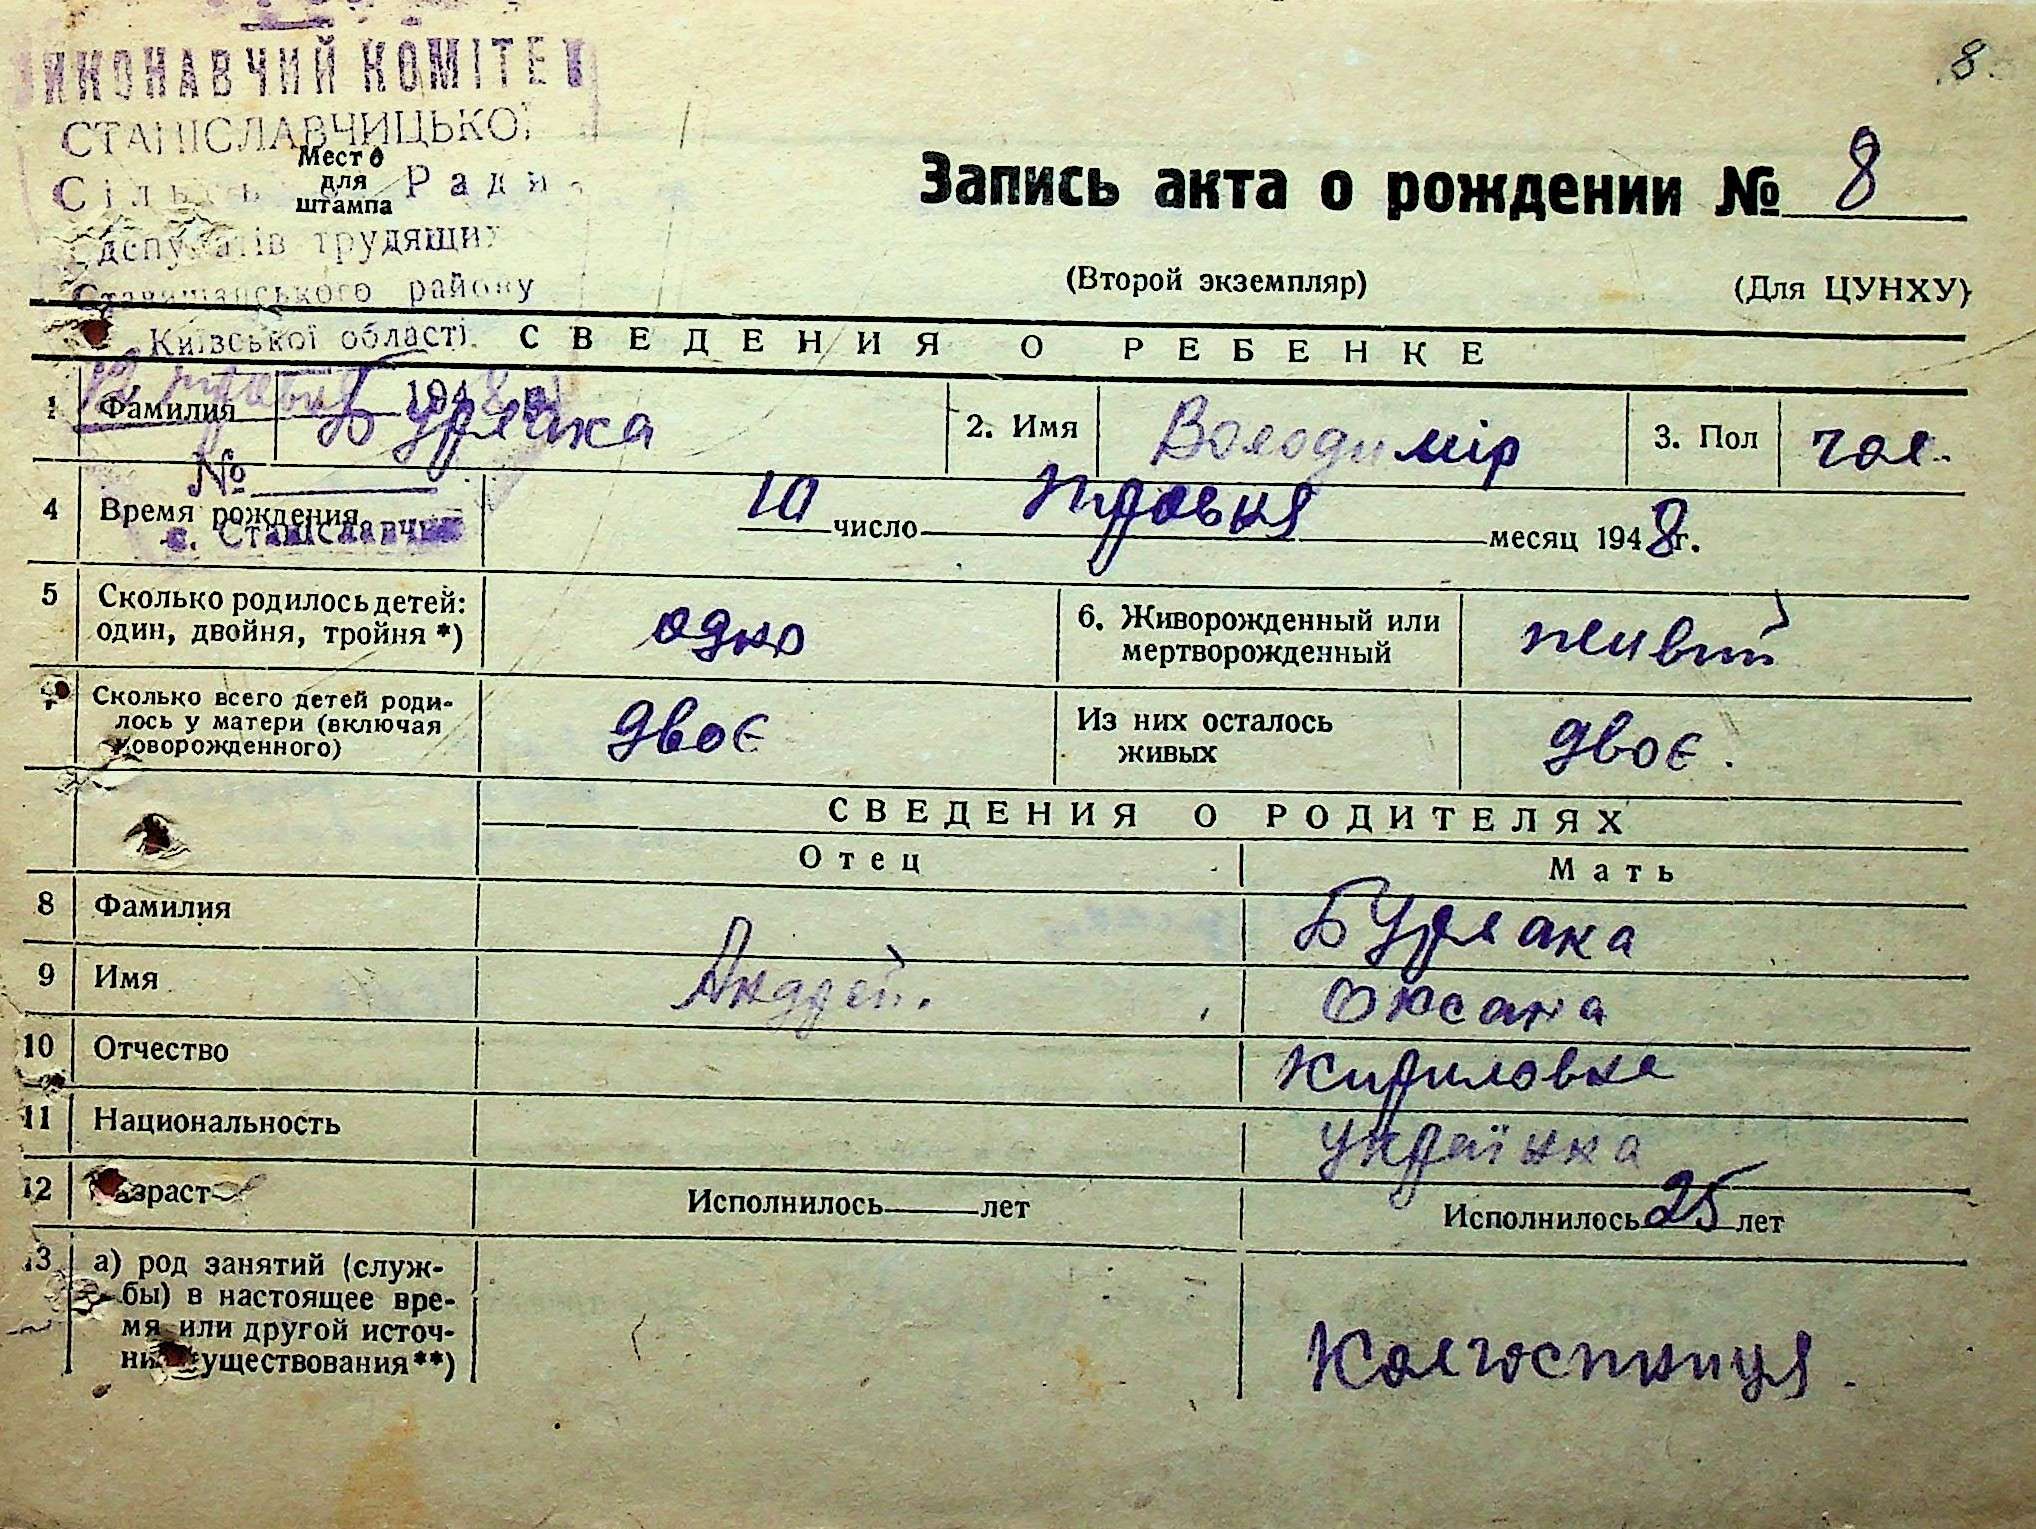 8.
ИКОНАВЧИЙ КОМІТЕ
СТАНІСЛАВЧИЦЬКОЇ
Место
для
штампа
Ради
депутатів трудящих
Ставищанського району
Київської області
194 8 р.
№
с. Станіславчик
Запись акта о рождении № 8
(Второй экземпляр) (Для ЦУНХУ)
СВЕДЕНИЯ О РЕБЕНКЕ
1 Фамилия Бурлака 2. Имя Володимір 3. Пол чол.
4 Время рождения 10 число травня месяц 1948 г.
5 Сколько родилось детей: один, двойня, тройня *) одно 6. Живорожденный или мертворожденный живий
7 Сколько всего детей родилось у матери (включая новорожденного) двоє Из них осталось живых двоє.
СВЕДЕНИЯ О РОДИТЕЛЯХ
Отец Мать
8 Фамилия Бурлака
9 Имя Андрей. Оксана
10 Отчество Кириловна
11 Национальность українка
12 Возраст Исполнилось лет Исполнилось 25 лет
13 а) род занятий (служ-
бы) в настоящее вре-
мя или другой источ-
ник существования**) Колгоспниця.